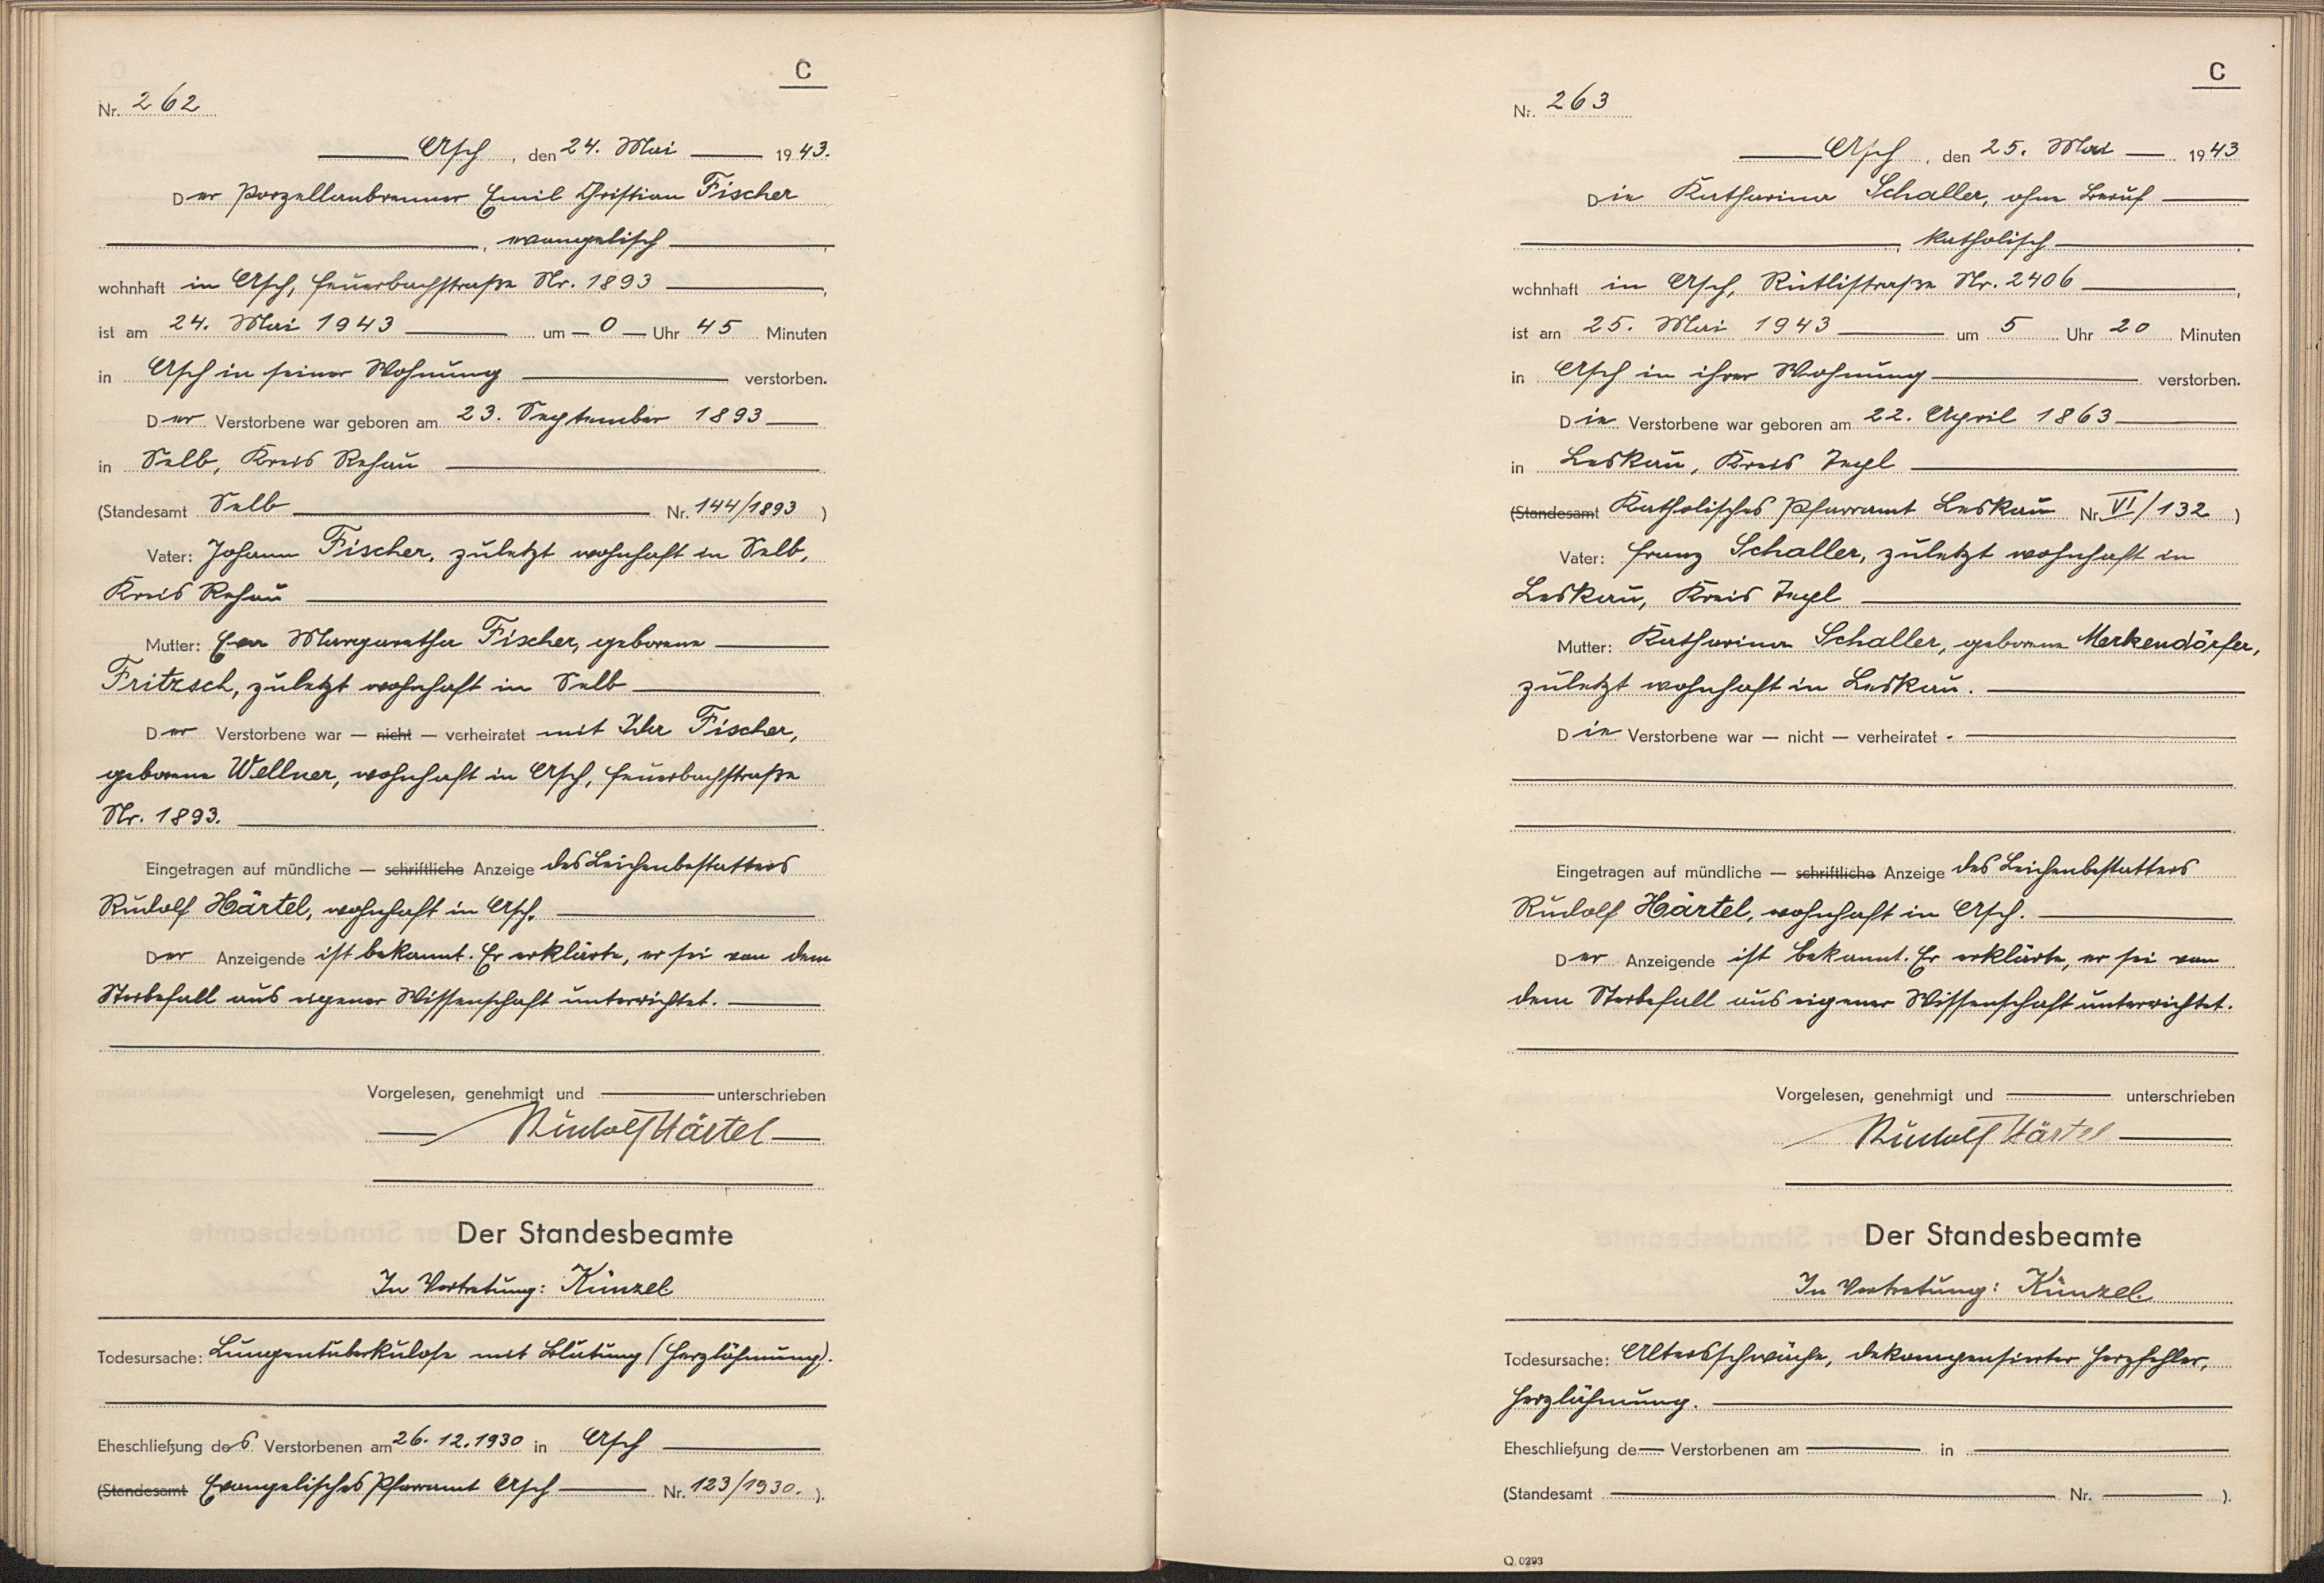 C
Nr. 262
Asch, den 24. Mai 1943.
Der Porzellanbrenner Emil Christian Fischer
, evangelisch ,
wohnhaft in Asch, Feuerbachstraße Nr. 1893 ,
ist am 24. Mai 1943 um 0 Uhr 45 Minuten
in Asch in seiner Wohnung verstorben.
Der Verstorbene war geboren am 23. September 1893
in Selb, Kreis Rehau
(Standesamt Selb Nr. 144/1893 )
Vater: Johann Fischer, zuletzt wohnhaft in Selb,
Kreis Rehau
Mutter: Eva Margaretha Fischer, geborene
Fritzsch, zuletzt wohnhaft in Selb
Der Verstorbene war — nicht — verheiratet mit Ida Fischer,
geborene Wellner, wohnhaft in Asch, Feuerbachstraße
Nr. 1893.
Eingetragen auf mündliche — schriftliche Anzeige des Leichenbestatters
Rudolf Härtel, wohnhaft in Asch.
Der Anzeigende ist bekannt. Er erklärte, er sei von dem
Sterbefall aus eigener Wissenschaft unterrichtet.
Vorgelesen, genehmigt und unterschrieben
Rudolf Härtel
Der Standesbeamte
In Vertretung: Künzel
Todesursache: Lungentuberkulose mit Blutung (Herzlähmung).
Eheschließung des Verstorbenen am 26.12.1930 in Asch
(Standesamt Evangelisches Pfarramt Asch Nr. 123/1930. ).
C
Nr. 263
Asch, den 25. Mai 1943
Die Katharina Schaller, ohne Beruf
, katholisch ,
wohnhaft in Asch, Rütlistraße Nr. 2406 ,
ist am 25. Mai 1943 um 5 Uhr 20 Minuten
in Asch in ihrer Wohnung verstorben.
Die Verstorbene war geboren am 22. April 1863
in Leskau, Kreis Tepl
(Standesamt Katholisches Pfarramt Leskau Nr. VI/132 )
Vater: Franz Schaller, zuletzt wohnhaft in
Leskau, Kreis Tepl
Mutter: Katharina Schaller, geborene Merkendörfer,
zuletzt wohnhaft in Leskau.
Die Verstorbene war — nicht — verheiratet .
Eingetragen auf mündliche — schriftliche Anzeige des Leichenbestatters
Rudolf Härtel, wohnhaft in Asch.
Der Anzeigende ist bekannt. Er erklärte, er sei von
dem Sterbefall aus eigener Wissenschaft unterrichtet.
Vorgelesen, genehmigt und unterschrieben
Rudolf Härtel
Der Standesbeamte
In Vertretung: Künzel.
Todesursache: Altersschwäche, dekompensierter Herzfehler,
Herzlähmung.
Eheschließung de Verstorbenen am in
(Standesamt Nr. ).
Q 0293